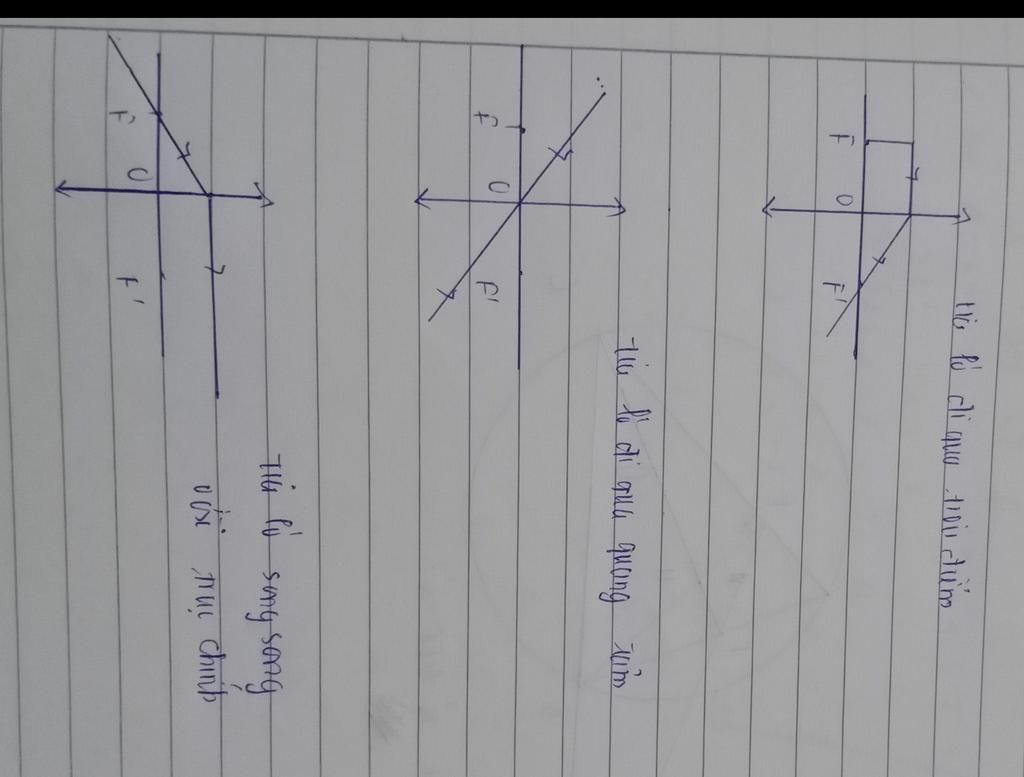 F
O
F'
tia ló đi qua tiêu điểm
F
O
F'
tia ló đi qua quang tâm
F
O
F'
Tia ló song song
với trục chính